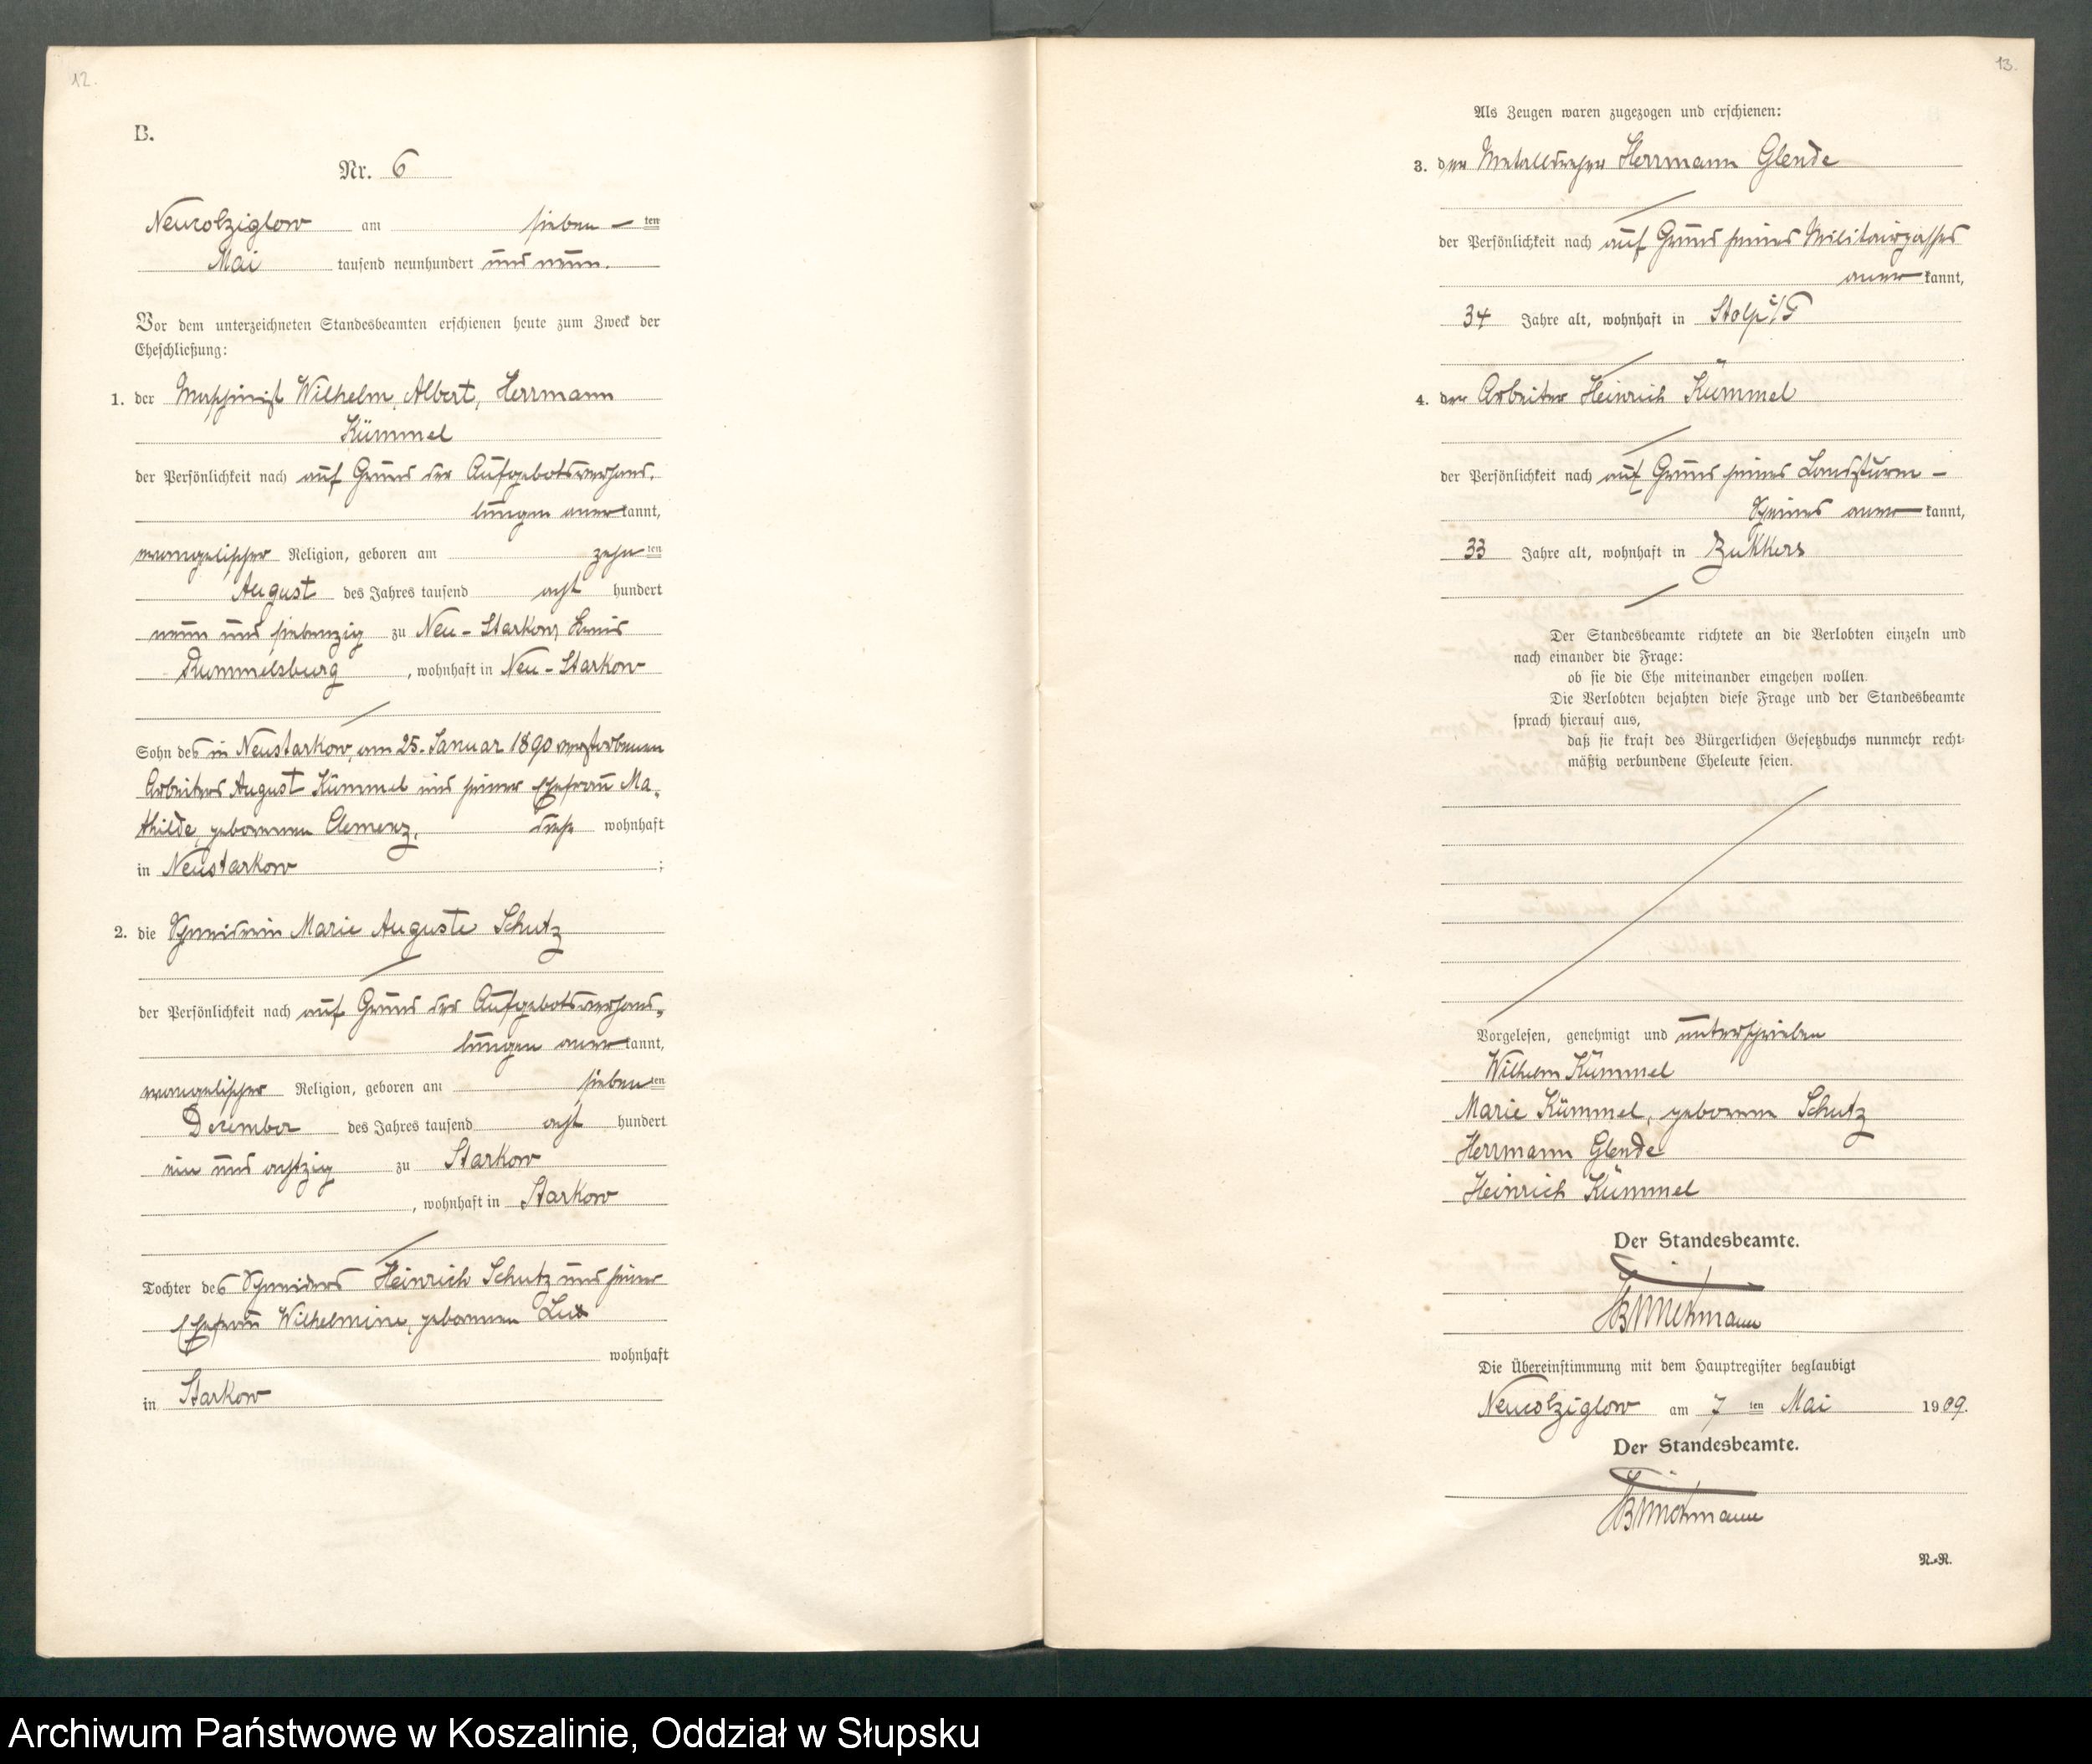 12.
B.
Nr. 6
Neukolziglow am sieben ten
Mai tausend neunhundert und neun.
Vor dem unterzeichneten Standesbeamten erschienen heute zum Zweck der
Eheschließung:
1. der Maschinist Wilhelm, Albert, Herrmann
Kümmel
der Persönlichkeit nach auf Grund der Aufgebotsverhand-
lungen anerkannt,
evangelischer Religion, geboren am zehn ten
August des Jahres tausend acht hundert
neun und siebenzig zu Neu-Starkow, Kreis
Rummelsburg, wohnhaft in Neu-Starkow
Sohn des in Neustarkow, am 25. Januar 1890 verstorbenen
Arbeiters August Kümmel und seiner Ehefrau Ma-
thilde, geborenen Clemenz, diese wohnhaft
in Neustarkow;
2. die Schneiderin Marie Auguste Schutz
der Persönlichkeit nach auf Grund der Aufgebotsverhand-
lungen anerkannt,
evangelischer Religion, geboren am sieben ten
Dezember des Jahres tausend acht hundert
ein und achtzig zu Starkow
, wohnhaft in Starkow
Tochter des Schneiders Heinrich Schutz und seiner
Ehefrau Wilhelmine, geborenen Lux
wohnhaft
in Starkow
13.
Als Zeugen waren zugezogen und erschienen:
3. der Metalldreher Herrmann Glende
der Persönlichkeit nach auf Grund seines Militairpasses
anerkannt,
34 Jahre alt, wohnhaft in Stolp i/P
4. der Arbeiter Heinrich Kümmel
der Persönlichkeit nach auf Grund seines Landsturm-
Scheines anerkannt,
33 Jahre alt, wohnhaft in Zukkers
Der Standesbeamte richtete an die Verlobten einzeln und
nach einander die Frage:
ob sie die Ehe miteinander eingehen wollen.
Die Verlobten bejahten diese Frage und der Standesbeamte
sprach hierauf aus,
daß sie kraft des Bürgerlichen Gesetzbuchs nunmehr recht-
mäßig verbundene Eheleute seien.
Vorgelesen, genehmigt und unterschrieben
Wilhelm Kümmel
Marie Kümmel, geborene Schutz
Herrmann Glende
Heinrich Kümmel
Der Standesbeamte.
Die Übereinstimmung mit dem Hauptregister beglaubigt
Neukolziglow am 7 ten Mai 1909.
Der Standesbeamte.
N.-R.
Archiwum Państwowe w Koszalinie, Oddział w Słupsku